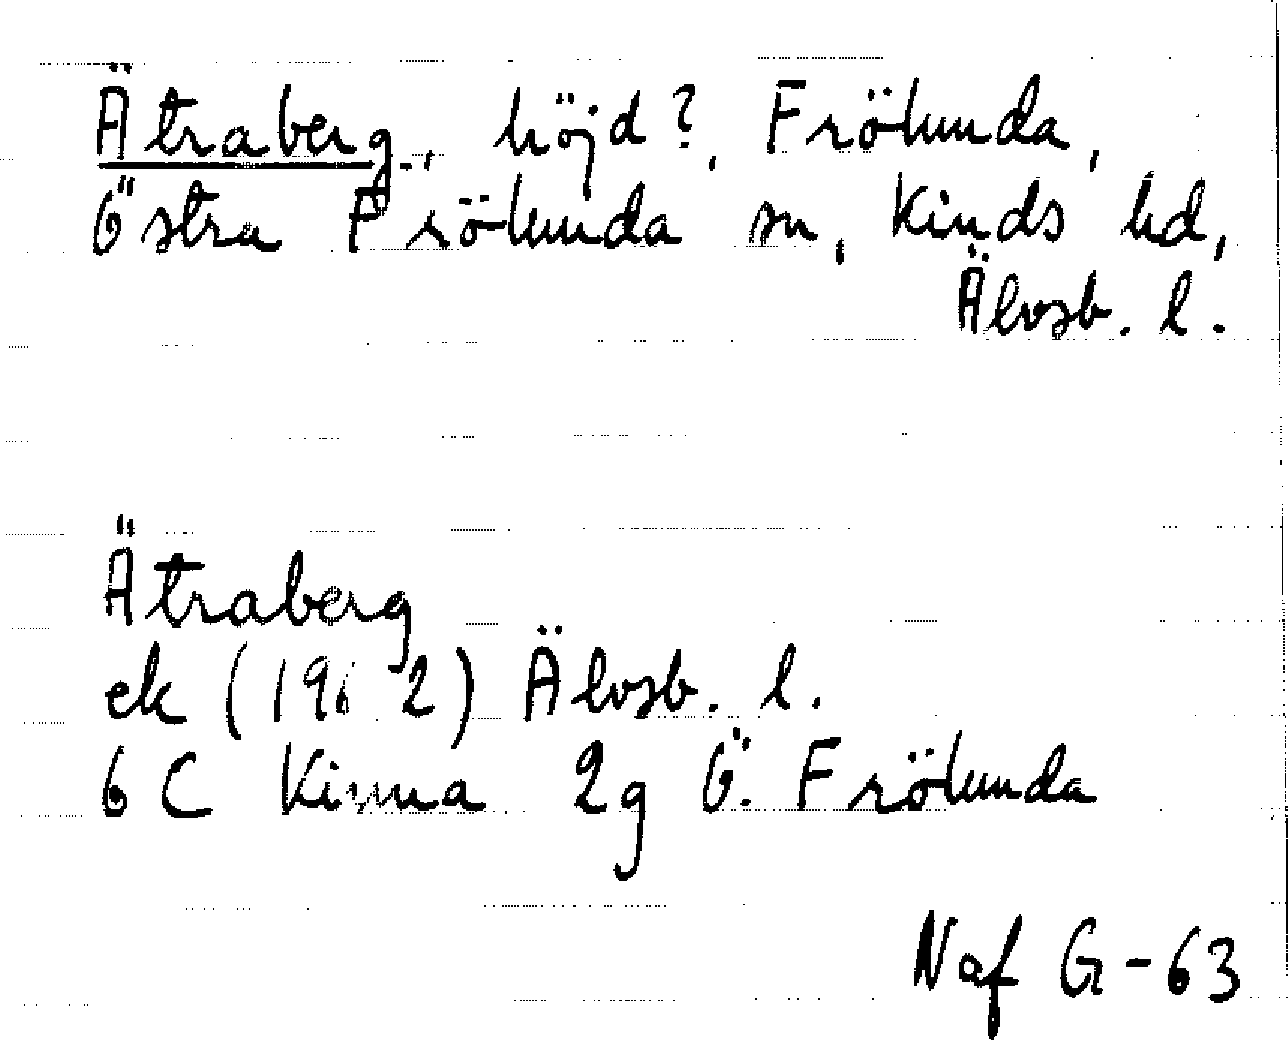 Ätraberg, höjd?, Frölunda,
Östra Frölunda sn, Kinds hd,
Älvsb. l.
Ätraberg
ek (1962) Älvsb. l.
6 C Kinna 2g Ö. Frölunda
Naf G-63